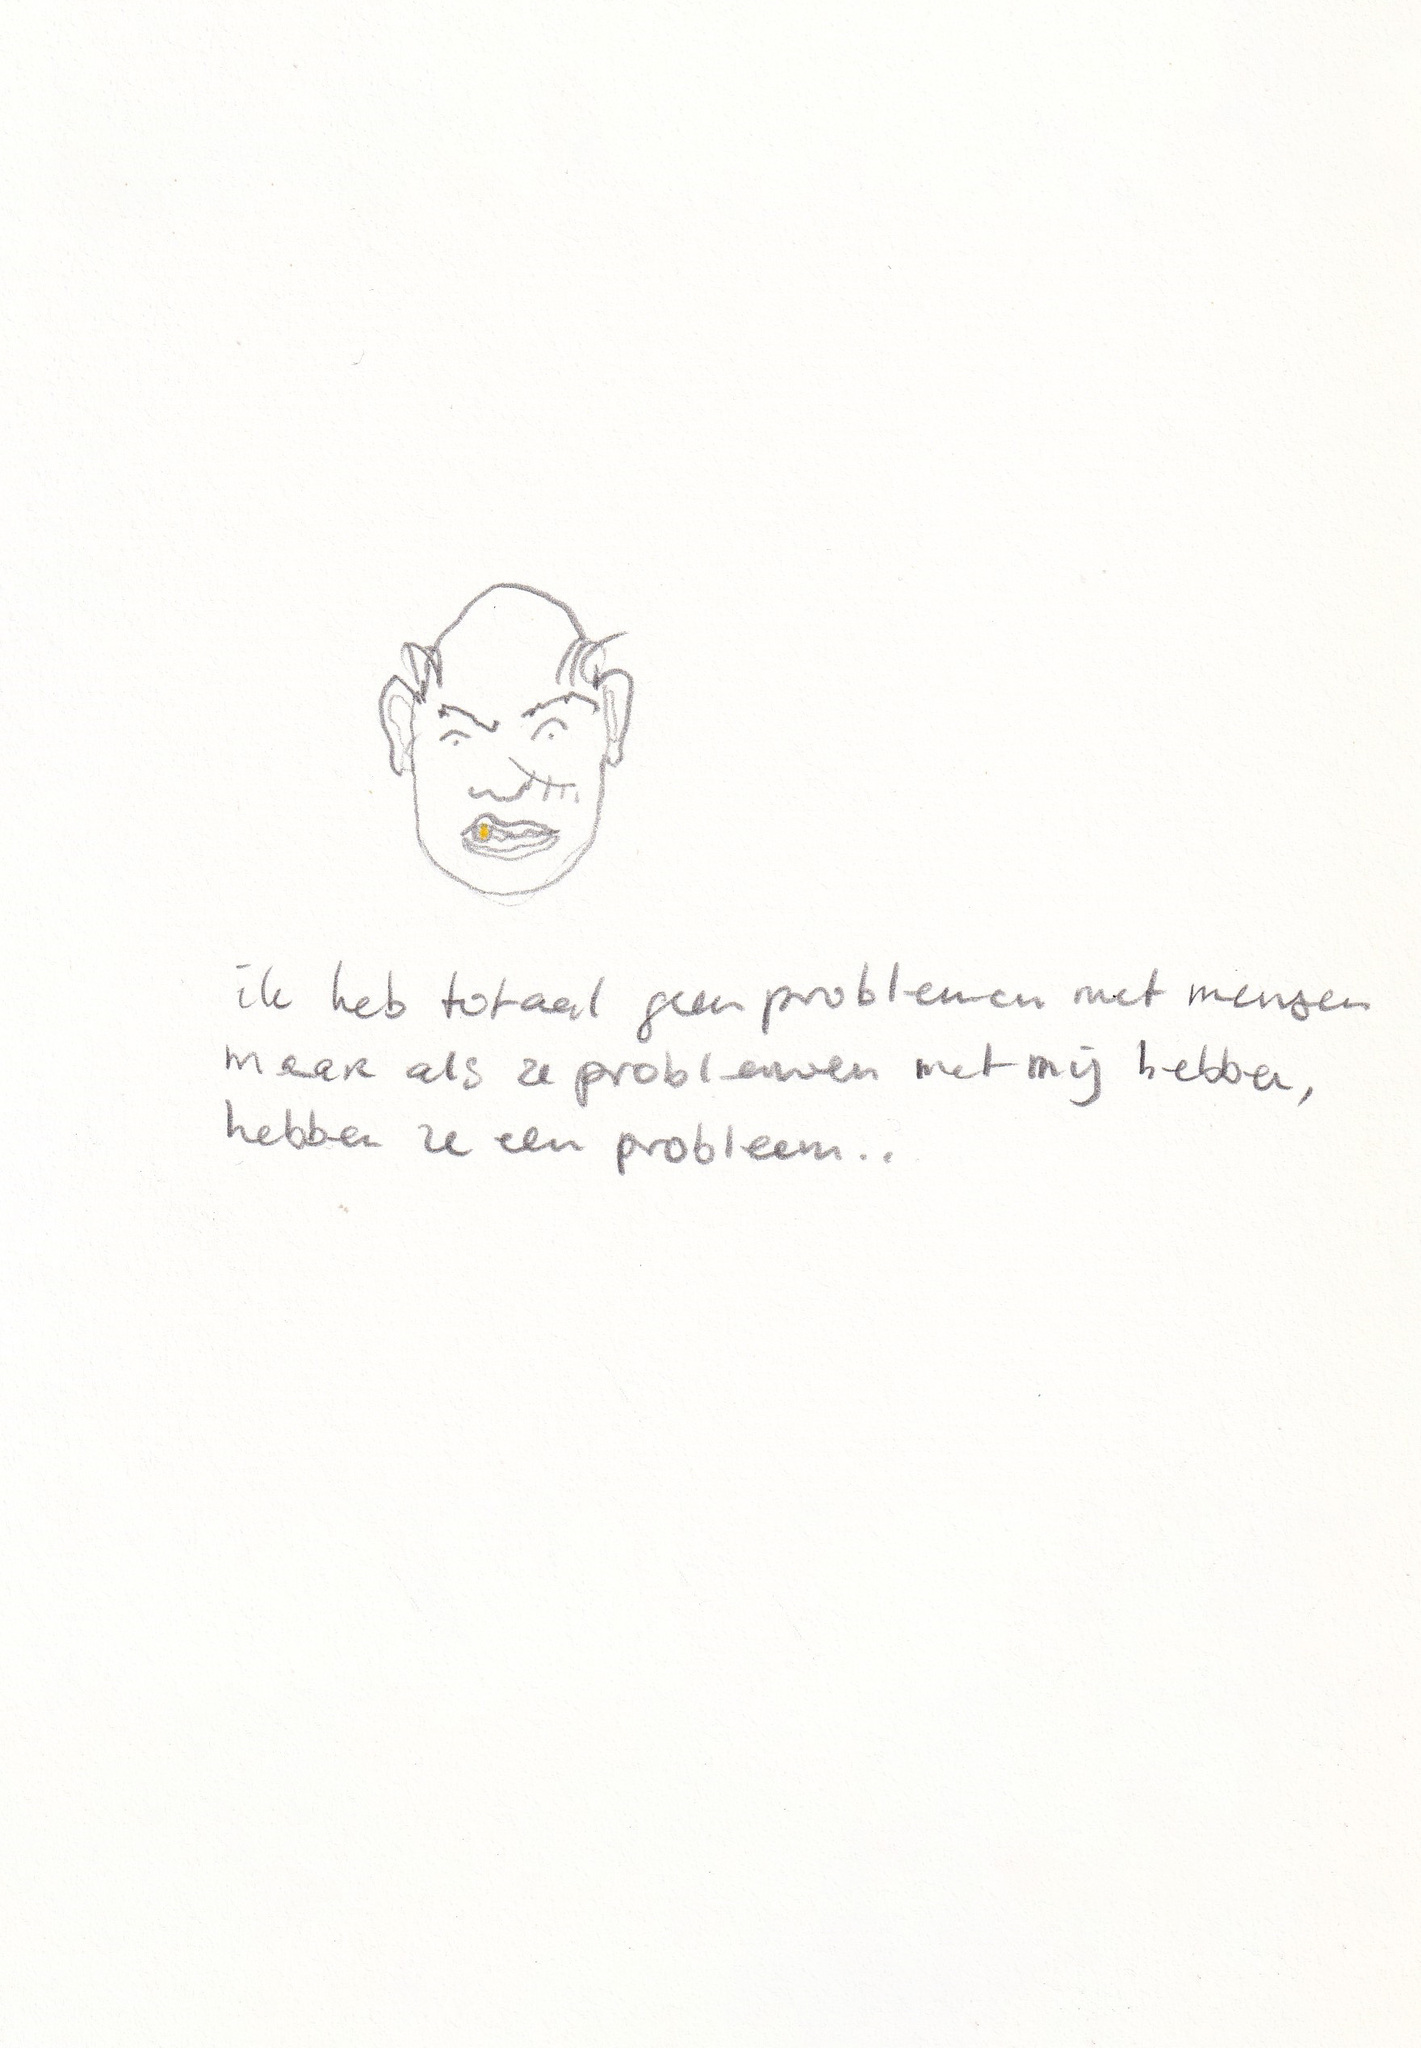 ik heb totaal geen problemen met mensen
maar als ze problemen met mij hebben,
hebben ze een probleem..